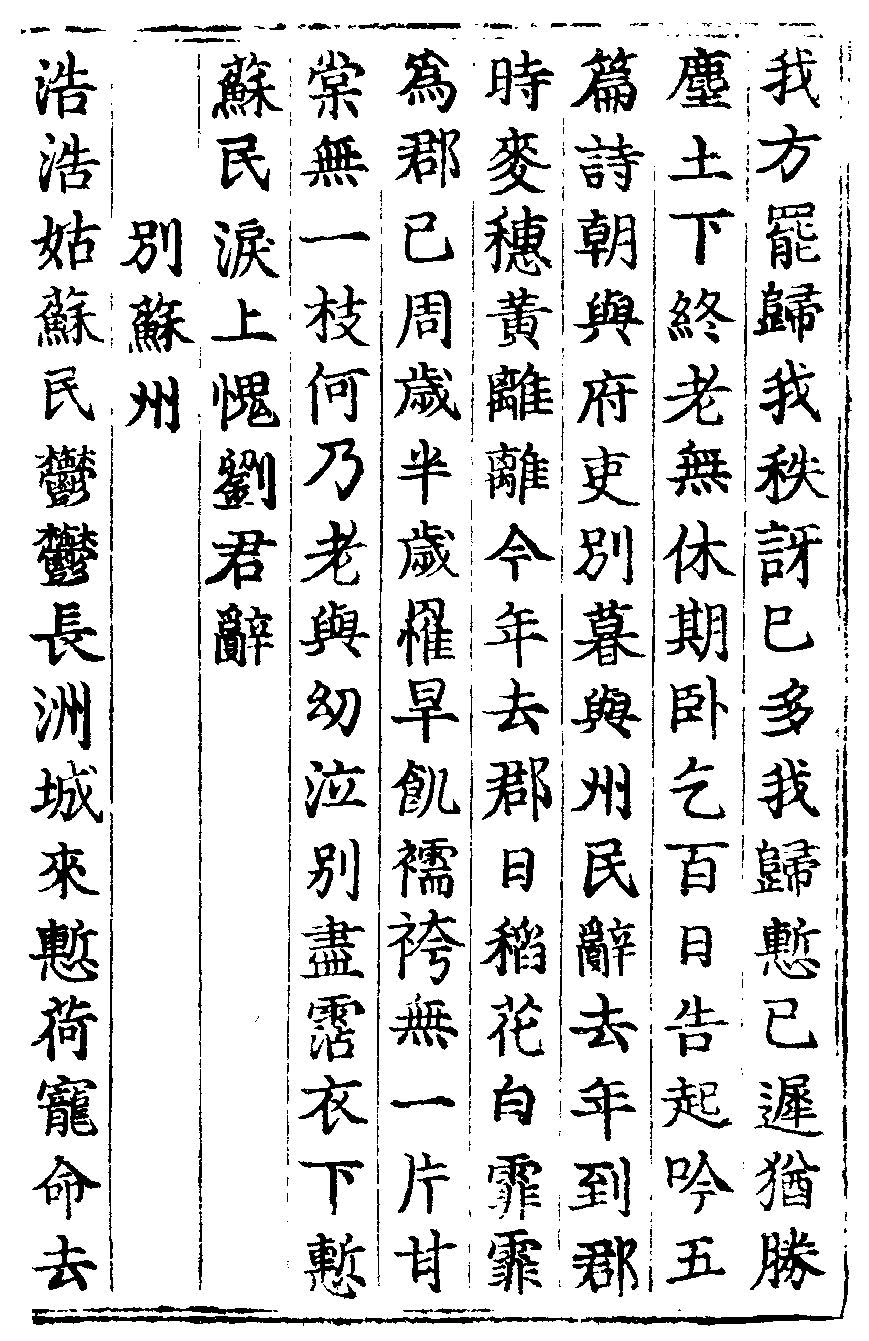 我方罷歸我秩訝已多我歸慙已遲猶勝
塵土下終老無休期卧乞百日告起吟五
篇詩朝與府吏別暮與州民辭去年到郡
時麥穗黄離離今年去郡日稻花白霏霏
為郡已周歳半歳罹旱飢襦袴無一片甘
棠無一枝何乃老與幼泣別盡霑衣下慙
蘇民淚上愧劉君辭
別蘇州
浩浩姑蘇民鬱鬱長洲城來慙荷寵命去